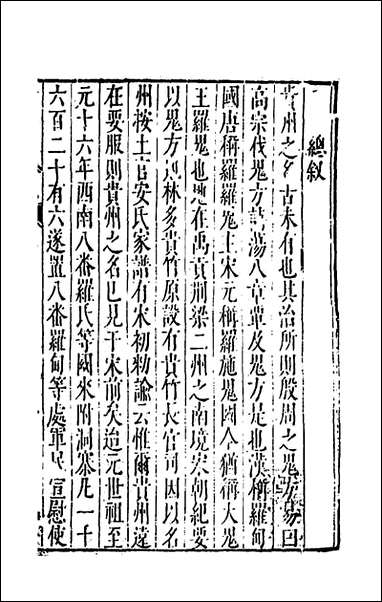 總叙
貴州之名古未有也其治所則殷周之鬼方易曰
高宗伐鬼方詩蕩八章覃及鬼方是也漢稱羅甸
國唐稱羅羅鬼主宋元稱羅施鬼國今猶稱大鬼
王羅鬼也地在禹貢荆梁二州之南境宋朝紀要
以鬼方 林多貴竹原設有貴竹長官司因以名
州按土官安氏家譜有宋初勑諭云惟爾貴州遠
在要服則貴州之名已見于宋前矣迨元世祖至
元十六年西南八番羅氏等國來附洞寨凡一千
六百二十有六遂置八番羅甸等處軍民宣慰使